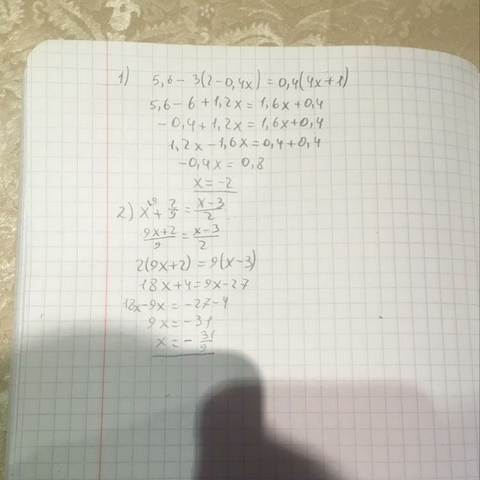 1) 5,6 - 3(2-0,4x) = 0,4(4x+1)
5,6 - 6 + 1,2x = 1,6x + 0,4
-0,4 + 1,2x = 1,6x + 0,4
1,2x - 1,6x = 0,4 + 0,4
-0,4x = 0,8
x = -2
2) x⁹ + 2/9 = x-3/2
9x+2/9 = x-3/2
2(9x+2) = 9(x-3)
18x + 4 = 9x - 27
18x - 9x = -27 - 4
9x = -31
x = - 31/9